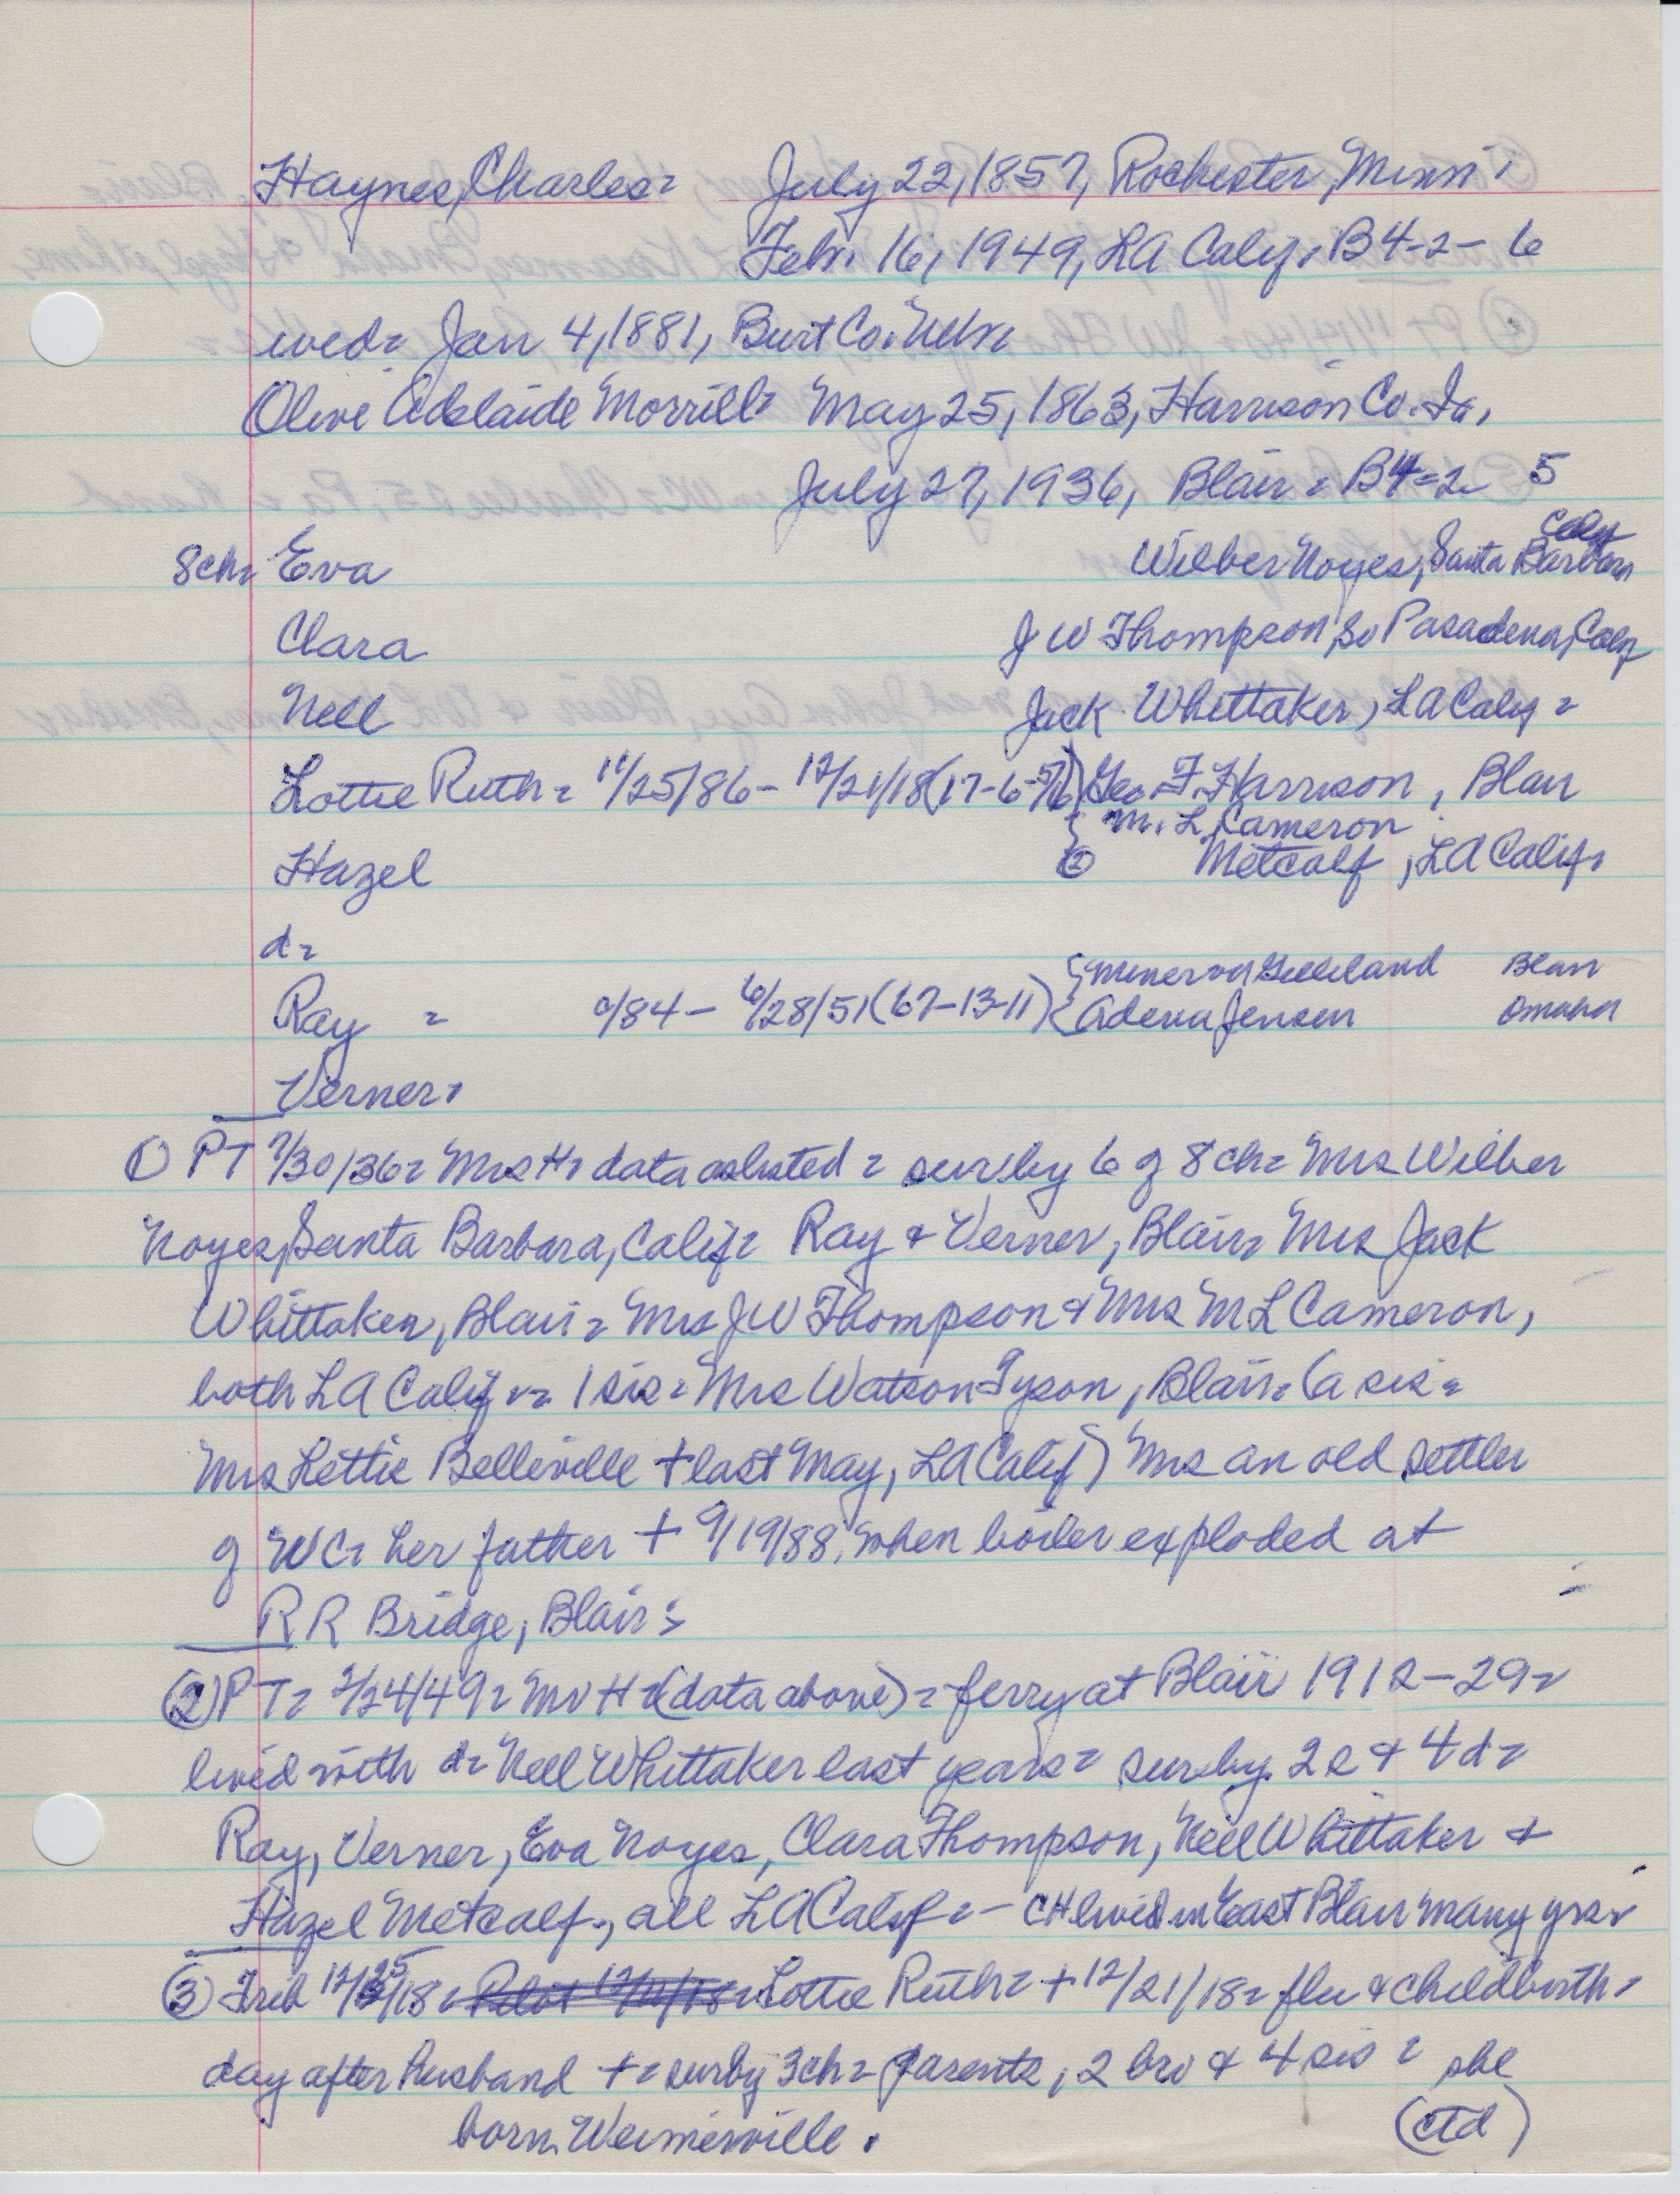 Haynes, Charles = July 22, 1857, Rochester, Minn.
Feb. 16, 1949, LA Calif. B4-2- 6
wed = Jan 4, 1881, Burt Co. Nebr
Olive Adelaide Morrill = May 25, 1863, Harrison Co. Ia.
July 27, 1936, Blair = B4=2 5
8ch = Eva Wilber Noyes, Santa Barbara Calif
Clara J W Thompson, So Pasadena, Calif
Nell Jack Whittaker, LA Calif =
Lottie Ruth = 11/25/86 - 12/21/18 (17-6-5/6) Geo. F. Harrison, Blair
{ M. L. Cameron
Hazel ② Metcalf, LA Calif.
d =
{ Minerva Gilleland Blair
Ray = /84 - 6/28/51 (67-13-11) { Adena Jensen Omaha
Verner =
① PT 7/30/36 = Mrs H = data as listed = sur by 6 of 8 ch = Mrs Wilber
Noyes, Santa Barbara, Calif = Ray + Verner, Blair = Mrs Jack
Whittaker, Blair = Mrs J W Thompson + Mrs M L Cameron,
both LA Calif = 1 sis = Mrs Watson Tyson, Blair = (a sis =
Mrs Lettie Belleville + last May, LA Calif) Mrs an old settler
of WC = her father + 9/19/88, when boiler exploded at
RR Bridge, Blair =
② PT = 2/24/49 = Mr H = (data above) = ferry at Blair 1912-29 =
lived with d = Nell Whittaker last years = sur by 2 s + 4 d =
Ray, Verner, Eva Noyes, Clara Thompson, Nell Whittaker +
Hazel Metcalf, all LA Calif = - CH lived in East Blair many yrs =
③ Trib 12/25/18 = Pilot = Lottie Ruth = + 12/21/18 = flu + childbirth =
day after husband + = sur by 3 ch = parents, 2 bro + 4 sis = she
born
(ctd)